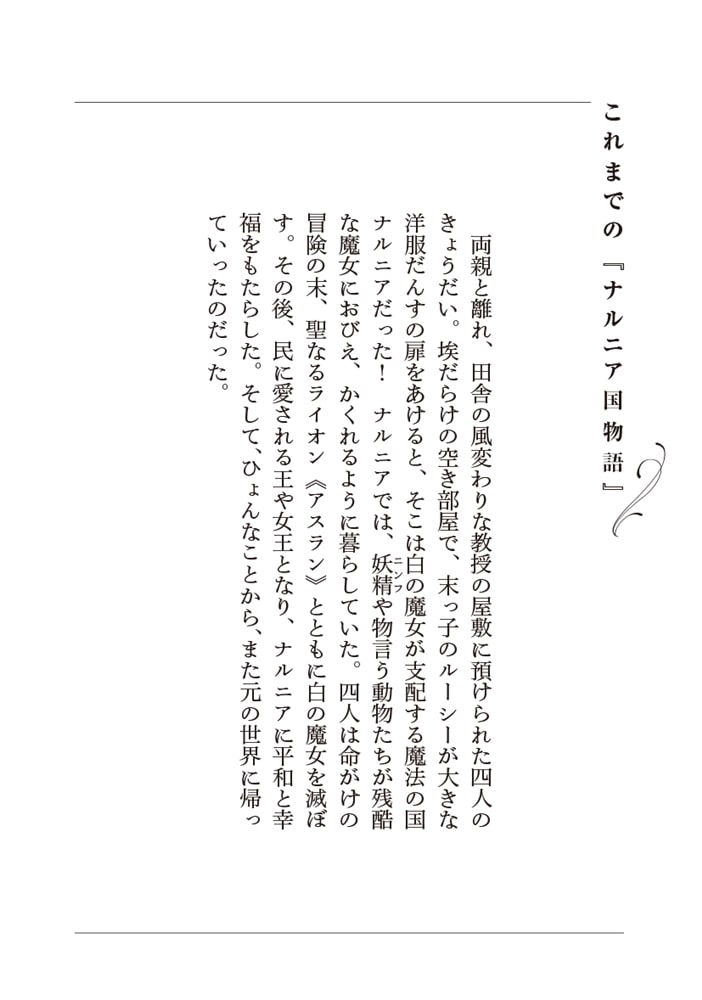 これまでの『ナルニア国物語』
両親と離れ、田舎の風変わりな教授の屋敷に預けられた四人の
きょうだい。埃だらけの空き部屋で、末っ子のルーシーが大きな
洋服だんすの扉をあけると、そこは白の魔女が支配する魔法の国
ナルニアだった！　ナルニアでは、妖精や物言う動物たちが残酷
ニンフ
な魔女におびえ、かくれるように暮らしていた。四人は命がけの
冒険の末、聖なるライオン《アスラン》とともに白の魔女を滅ぼ
す。その後、民に愛される王や女王となり、ナルニアに平和と幸
福をもたらした。そして、ひょんなことから、また元の世界に帰っ
ていったのだった。